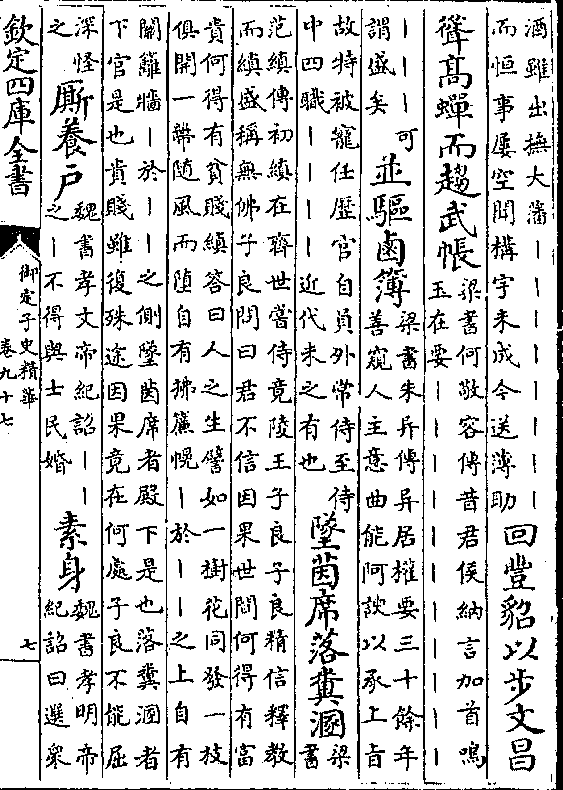 酒雖出撫大藩｜｜｜｜｜｜｜｜
而恒事屢空聞構宇未成今送薄助
回豐貂以步文昌
聳高蟬而趨武帳
梁書何敬容傳昔君侯納言加首鳴
玉在要｜｜｜｜｜｜｜｜｜｜｜
｜｜｜可
謂盛矣
並驅鹵簿
梁書朱异傳异居權要三十餘年
善窺人主意曲能阿諛以承上旨
故特被寵任歷官自員外常侍至侍
中四職｜｜｜｜近代未之有也
墜茵席落糞溷
梁
書
范縝傳初縝在齊世嘗侍竟陵王子良子良精信釋教
而縝盛稱無佛子良問曰君不信因果世間何得有富
貴何得有貧賤縝答曰人之生譬如一樹花同發一枝
俱開一蔕随風而墮自有拂簾幌｜於｜｜之上自有
關籬牆｜於｜｜之側墜茵席者殿下是也落糞溷者
下官是也貴賤雖復殊途因果竟在何處子良不能屈
深怪
之
廝養戶
魏書孝文帝紀詔｜｜
之｜不得與士民婚
素身
魏書孝明帝
紀詔曰選衆
欽定四庫全書
御定子史精華
卷九十七
七